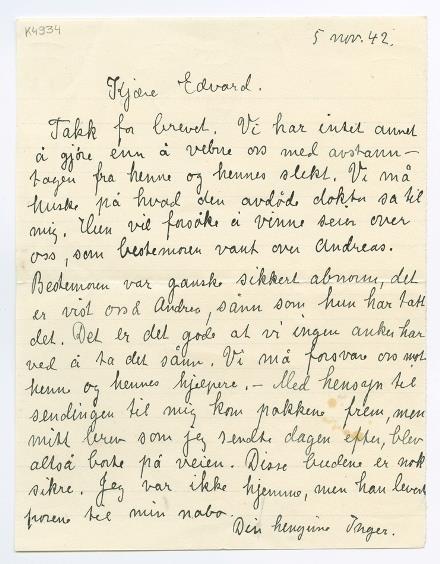 K4934
5 nov. 42.
Kjære Edvard.
Takk for brevet. Vi har intet annet
å gjöre enn å vebne oss med avstann-
tagen fra henne og hennes slekt. Vi må
huske på hvad den avdöde doktor sa til
mig. Hun vil forsöke å vinne seier over
oss, som bestemoren vant over Andreas.
Bestemoren var ganske sikkert abnorm, det
er vist også Andrea, sånn som hun har tatt
det. Det er det gode at vi ingen anker har
ved å ta det sånn. Vi må forsvare oss mot
henne og hennes hjelpere. - Med hensyn til
sendingen til mig kom pakkene frem, men
mitt brev som jeg sendte dagen efter, blev
altså borte på veien. Disse budene er nok
sikre. Jeg var ikke hjemme, men han levert
posene til min nabo.
Din hengivne Inger.